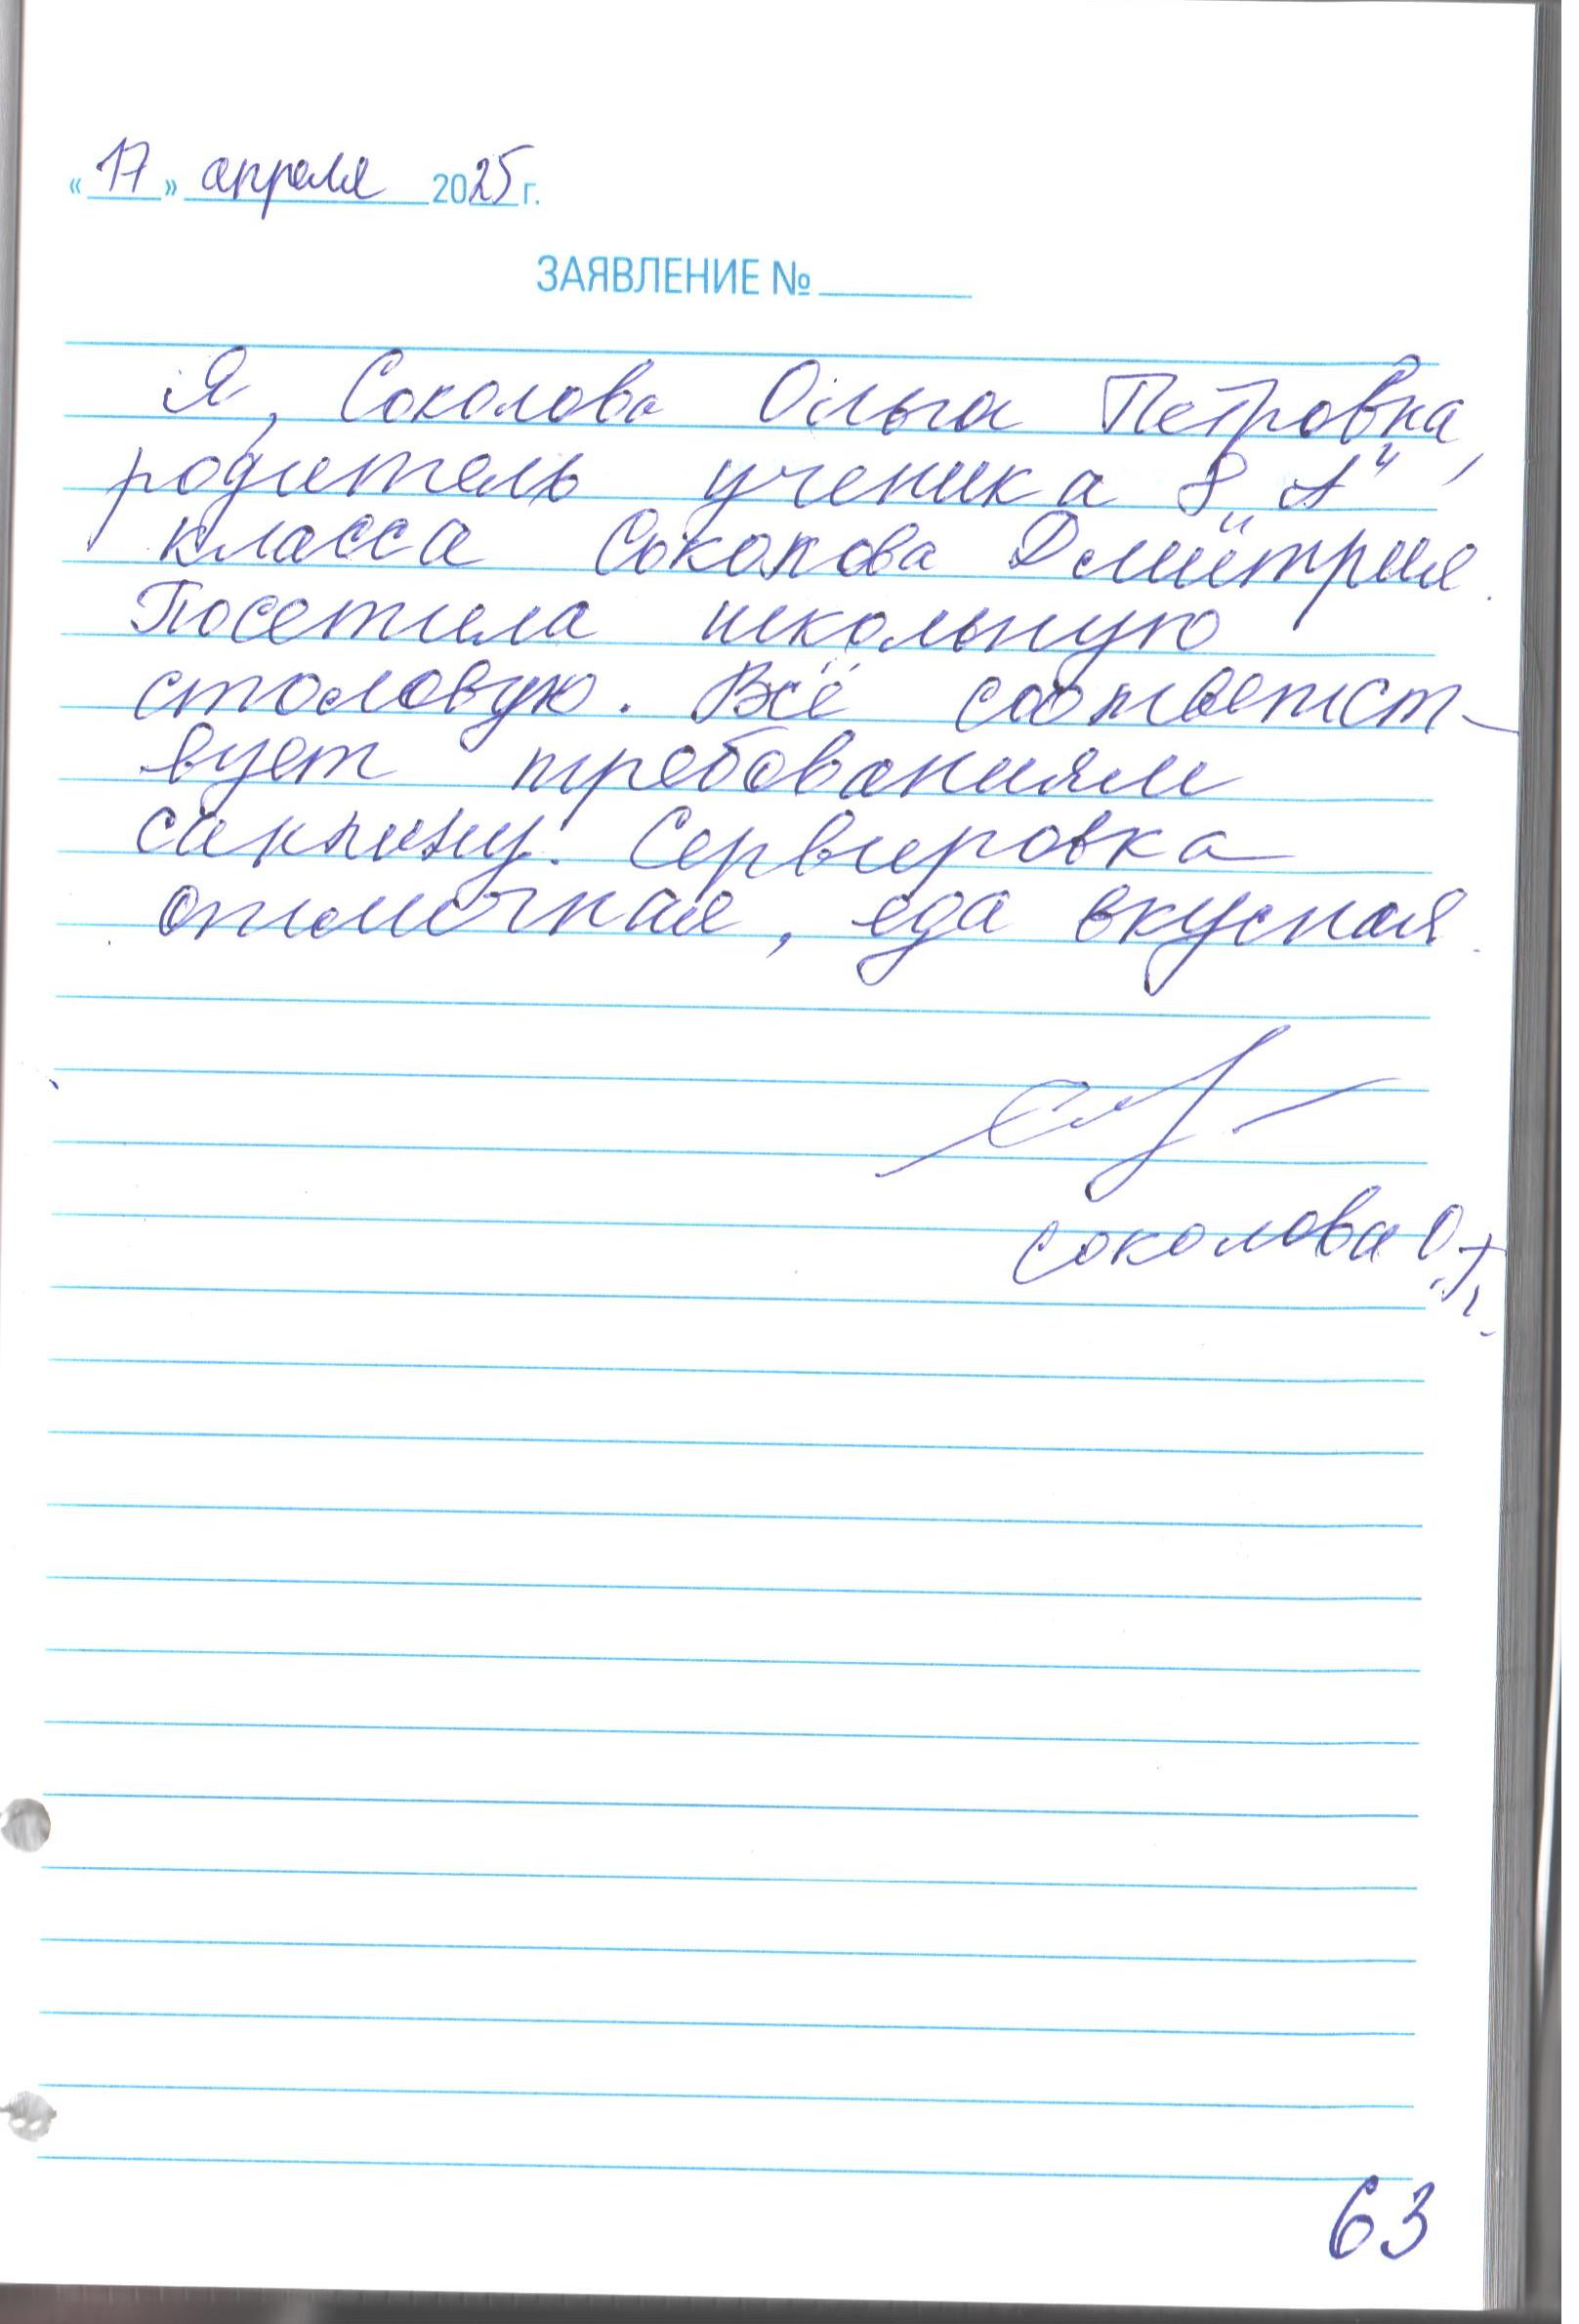 «17» апреля 2025 г.
ЗАЯВЛЕНИЕ №
Я, Соколова Ольга Петровна,
родитель ученика 8 „А"
класса Соколова Дмитрия.
Посетила школьную
столовую. Всё соответст-
вует требованиям
санпину. Сервировка
отличная, еда вкусная.
Соколова О.П.
63